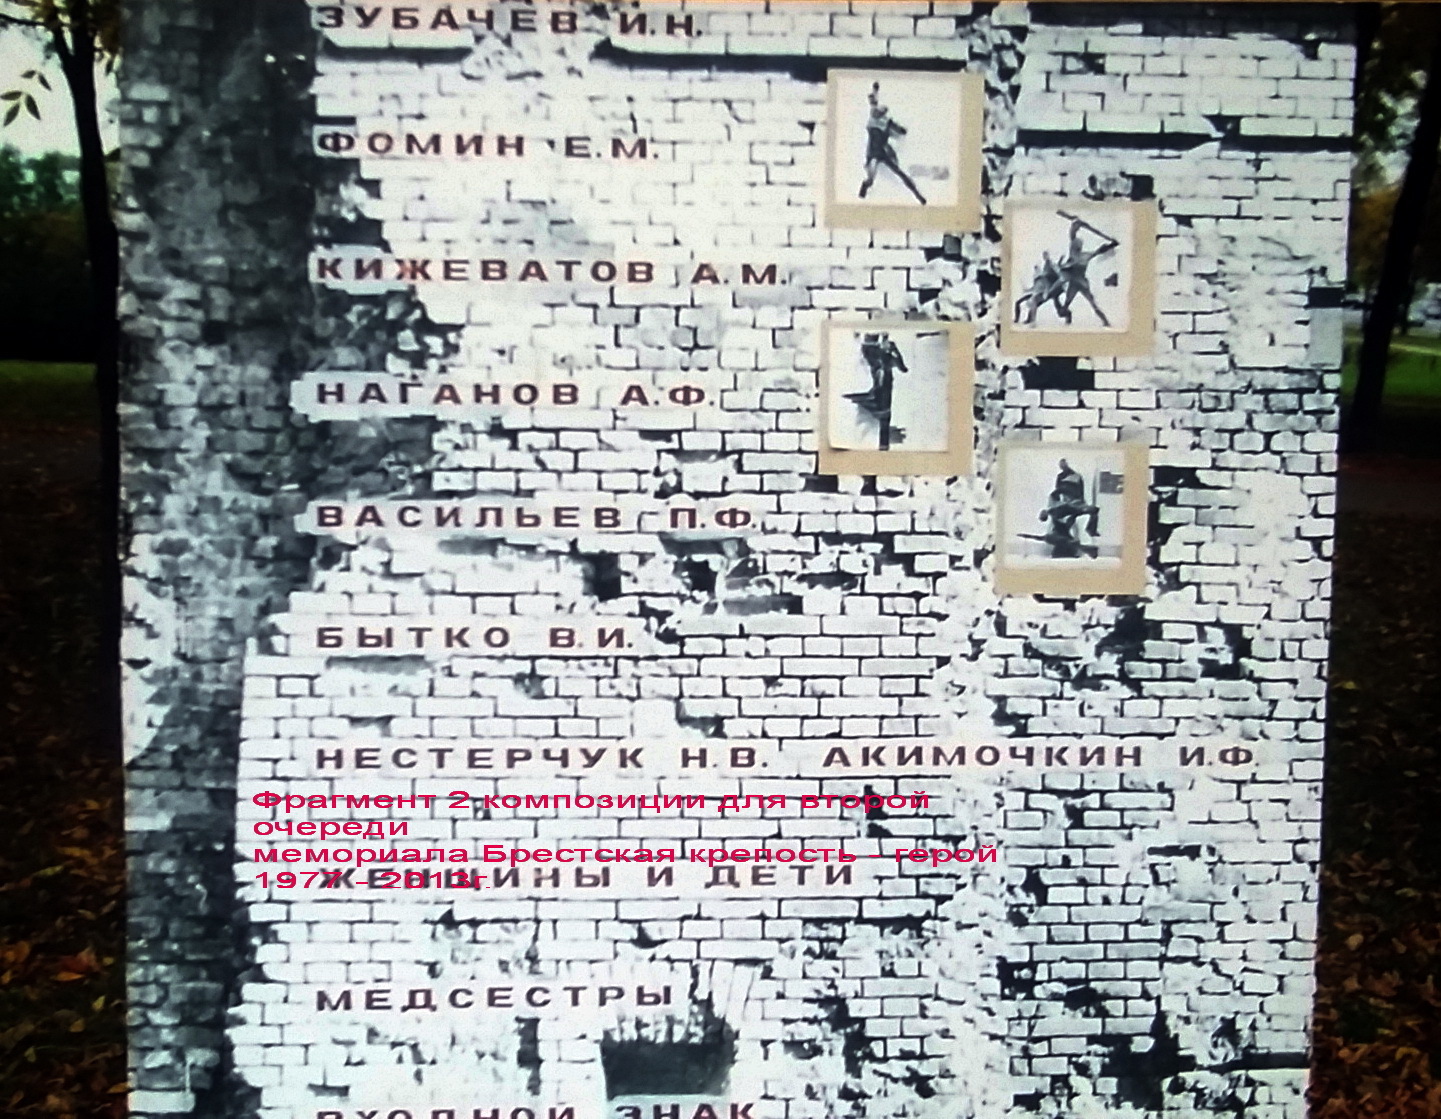 ЗУБАЧЕВ И.Н.
ФОМИН Е.М.
КИЖЕВАТОВ А.М.
НАГАНОВ А.Ф.
ВАСИЛЬЕВ П.Ф.
БЫТКО В.И.
НЕСТЕРЧУК Н.В. АКИМОЧКИН И.Ф.
Фрагмент 2 композиции для второй
очереди
мемориала Брестская крепость - герой
1977 - 2013г.
ЖЕНЩИНЫ И ДЕТИ
МЕДСЕСТРЫ
ВХОДНОЙ ЗНАК